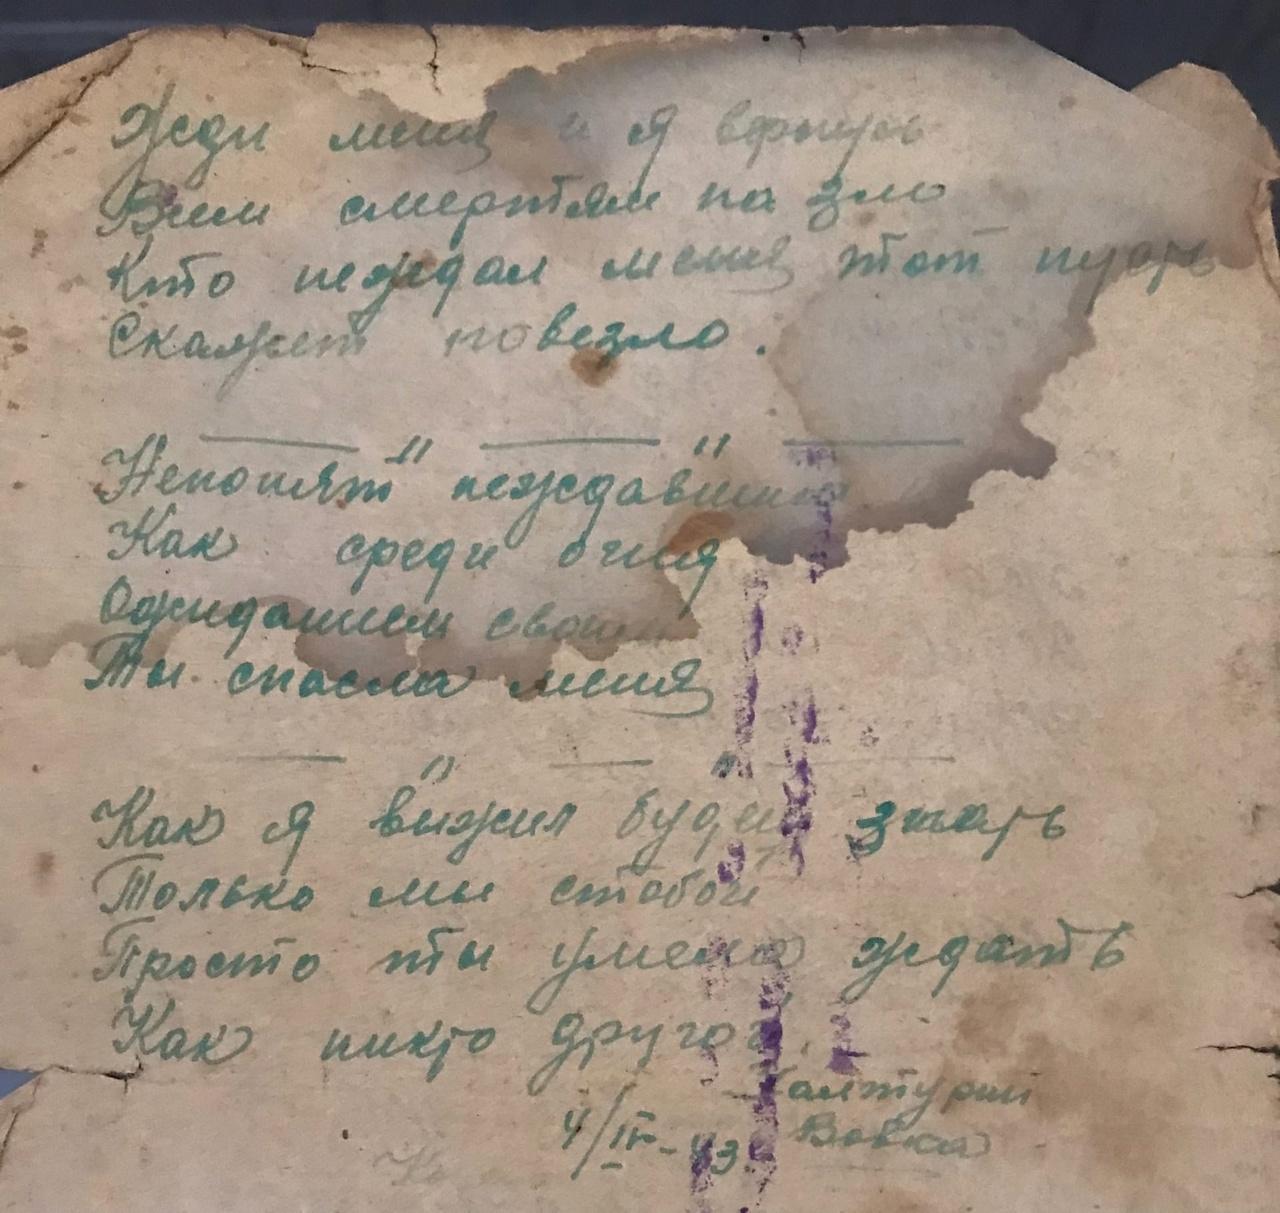 Жди меня и я вернусь
Всем смертям на зло
Кто неждал меня тот пусть
Скажет повезло.
— " — " —
Непонят неждавшим
Как среди огня
Ожиданием своим
Ты спасла меня
— " — " —
Как я выжил будем знать
Только мы стобой
Просто ты умела ждать
Как никто другой.
4/IV-43 Вовка